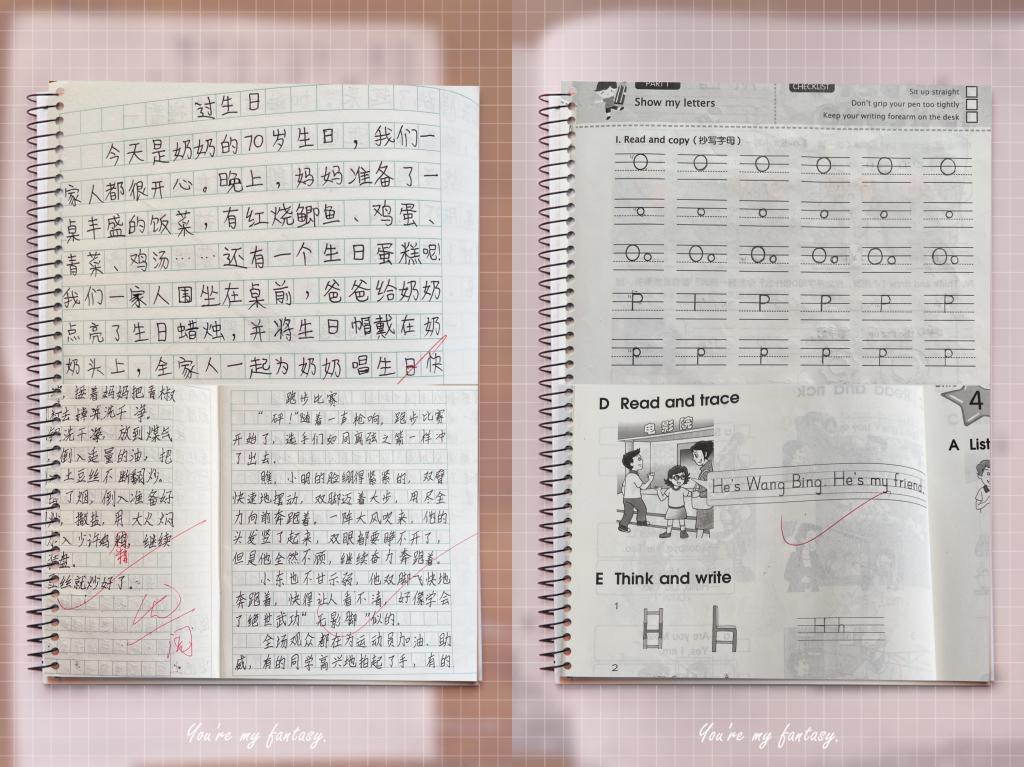 过生日
今天是奶奶的70岁生日，我们一
家人都很开心。晚上，妈妈准备了一
桌丰盛的饭菜，有红烧鲫鱼、鸡蛋、
青菜、鸡汤……还有一个生日蛋糕呢!
我们一家人围坐在桌前，爸爸给奶奶
点亮了生日蜡烛，并将生日帽戴在奶
奶头上，全家人一起为奶奶唱生日快
着妈妈把青椒
洗干净。
洗干净，放到煤气
倒入适量的油，把
土豆丝不断翻炒。
了烟，倒入准备好
撒盐，用大火焖
入少许鸡精，继续
精
丝就炒好了。
阅
跑步比赛
“砰！”随着一声枪响，跑步比赛
开始了，选手们如同离弦之箭一样冲
了出去。
瞧，小明的脸绷得紧紧的，双臂
快速地摆动，双脚迈着大步，用尽全
力向前奔跑着。一阵大风吹来，他的
头发竖了起来，双眼都要睁不开了，
但是他全然不顾，继续奋力奔跑着。
小东也不甘示弱，他双脚飞快地
奔跑着，快得让人看不清，好像学会
了绝世武功“无影脚”似的。
全场观众都在为运动员加油、助
威，有的同学高兴地拍起了手，有的
You're my fantasy.
PART 1
Show my letters
CHECKLIST
Sit up straight
Don't grip your pen too tightly
Keep your writing forearm on the desk
I. Read and copy (抄写字母)
O O O O O O
o o o o o o
Oo Oo Oo Oo Oo Oo
P P P P P
p p p p p p
D Read and trace
电影院
He's Wang Bing. He's my friend.
4
A List
E Think and write
1
H h
2
You're my fantasy.